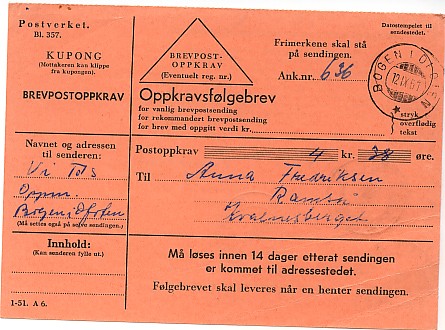 Postverket.
Bl. 357.
KUPONG
(Mottakeren kan klippe
fra kupongen).
BREVPOSTOPPKRAV
Navnet og adressen
til senderen:
Oppm.
Bogen i Ofoten
(Må settes også på selve sendingen.)
Innhold:
(Kan senderen fylle ut.)
1-51. A 6.
BREVPOST-
OPPKRAV
(Eventuelt reg. nr.)
Frimerkene skal stå
på sendingen.
Ank.nr. 636
Datostempelet til
sendestedet.
BOGEN I OFOTEN
Oppkravsfølgebrev
for vanlig brevpostsending
for rekommandert brevpostsending
for brev med oppgitt verdi kr.
* stryk
overflødig
tekst
Postoppkrav 4 kr. 38 øre.
Til Anna Fredriksen
Kvalnesberget
Må løses innen 14 dager etterat sendingen
er kommet til adressestedet.
Følgebrevet skal leveres når en henter sendingen.